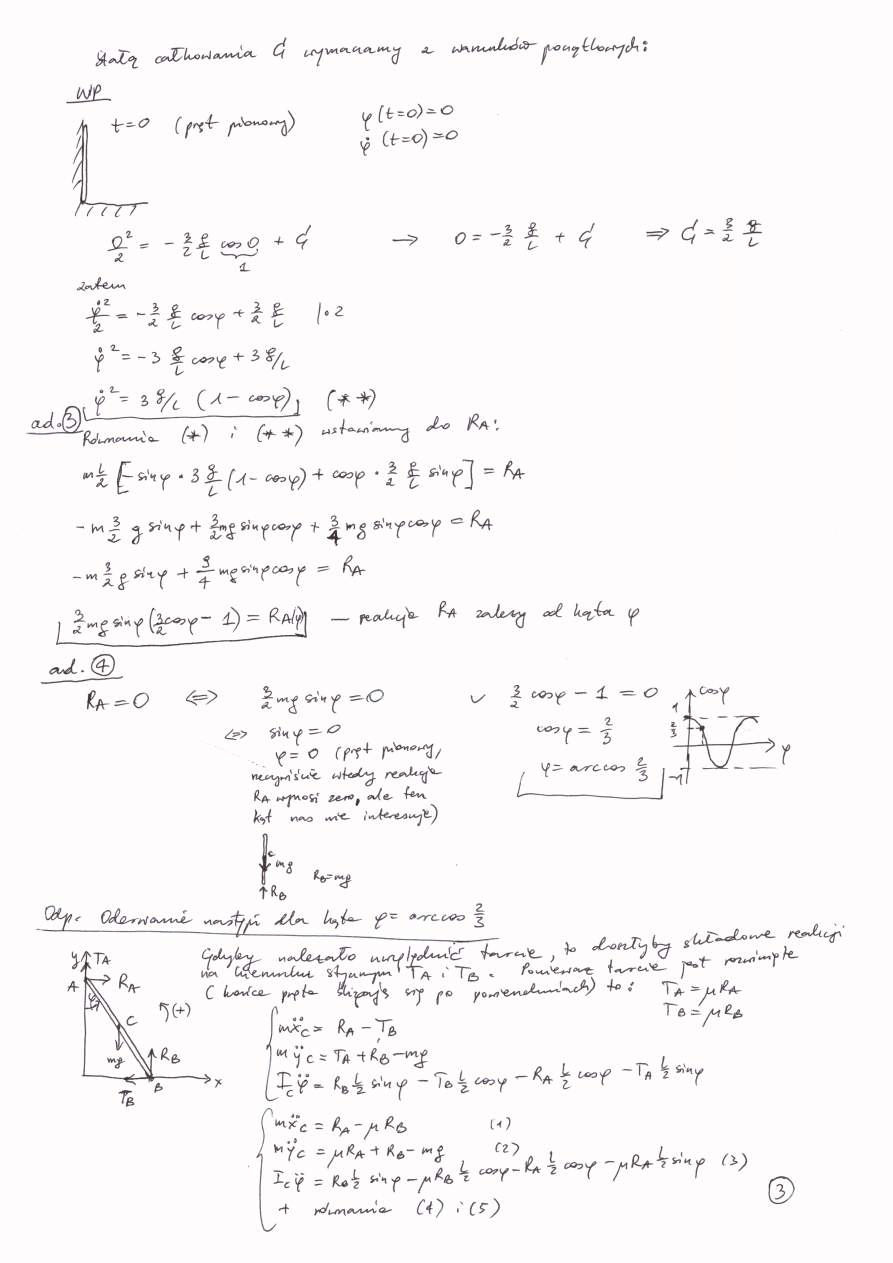 Stałą całkowania C₁ wyznaczamy z warunków początkowych:
WP
t=0 (pręt pionowy) φ(t=0)=0
φ̇(t=0)=0
0²/2 = -3/2 g/L cos0 + C₁ → 0 = -3/2 g/L + C₁ ⇒ C₁ = 3/2 g/L
1
zatem
φ̇²/2 = -3/2 g/L cosφ + 3/2 g/L |·2
φ̇² = -3 g/L cosφ + 3 g/L
φ̇² = 3 g/L (1 - cosφ) (**)
ad. ③
Równania (*) i (**) wstawiamy do RA:
m L/2 [-sinφ · 3 g/L (1-cosφ) + cosφ · 3/2 g/L sinφ] = RA
-m 3/2 g sinφ + 3/2 mg sinφcosφ + 3/4 mg sinφcosφ = RA
-m 3/2 g sinφ + 9/4 mg sinφcosφ = RA
3/2 mg sinφ (3/2 cosφ - 1) = RA(φ) — reakcja RA zależy od kąta φ
ad. ④
RA = 0 ⇔ 3/2 mg sinφ = 0 ∨ 3/2 cosφ - 1 = 0
⇔ sinφ = 0 cosφ = 2/3
φ = 0 (pręt pionowy, φ = arccos 2/3
rzeczywiście wtedy reakcja
RA wynosi zero, ale ten
kąt nas nie interesuje)
cosφ
1
2/3
-1
φ
c
mg
RB RB=mg
Odp. Oderwanie nastąpi dla kąta φ = arccos 2/3
Gdyby należało uwzględnić tarcie, to doszłyby składowe reakcji
na kierunku stycznym TA i TB. Ponieważ tarcie jest rozwinięte
(końce pręta ślizgają się po powierzchniach) to: TA = μRA
TB = μRB
y TA
A RA
φ
C (+)
mg RB
TB B x
mẍC = RA - TB
mÿC = TA + RB - mg
ICφ̈ = RB L/2 sinφ - TB L/2 cosφ - RA L/2 cosφ - TA L/2 sinφ
mẍC = RA - μRB (1)
mÿC = μRA + RB - mg (2)
ICφ̈ = RB L/2 sinφ - μRB L/2 cosφ - RA L/2 cosφ - μRA L/2 sinφ (3)
+ równania (4) i (5)
③